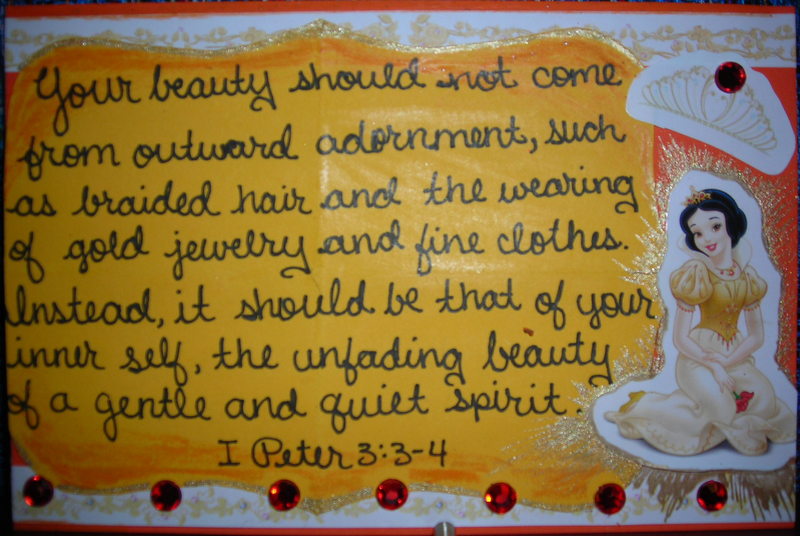 Your beauty should not come
from outward adornment, such
as braided hair and the wearing
of gold jewelry and fine clothes.
Instead, it should be that of your
inner self, the unfading beauty
of a gentle and quiet spirit.
I Peter 3:3-4